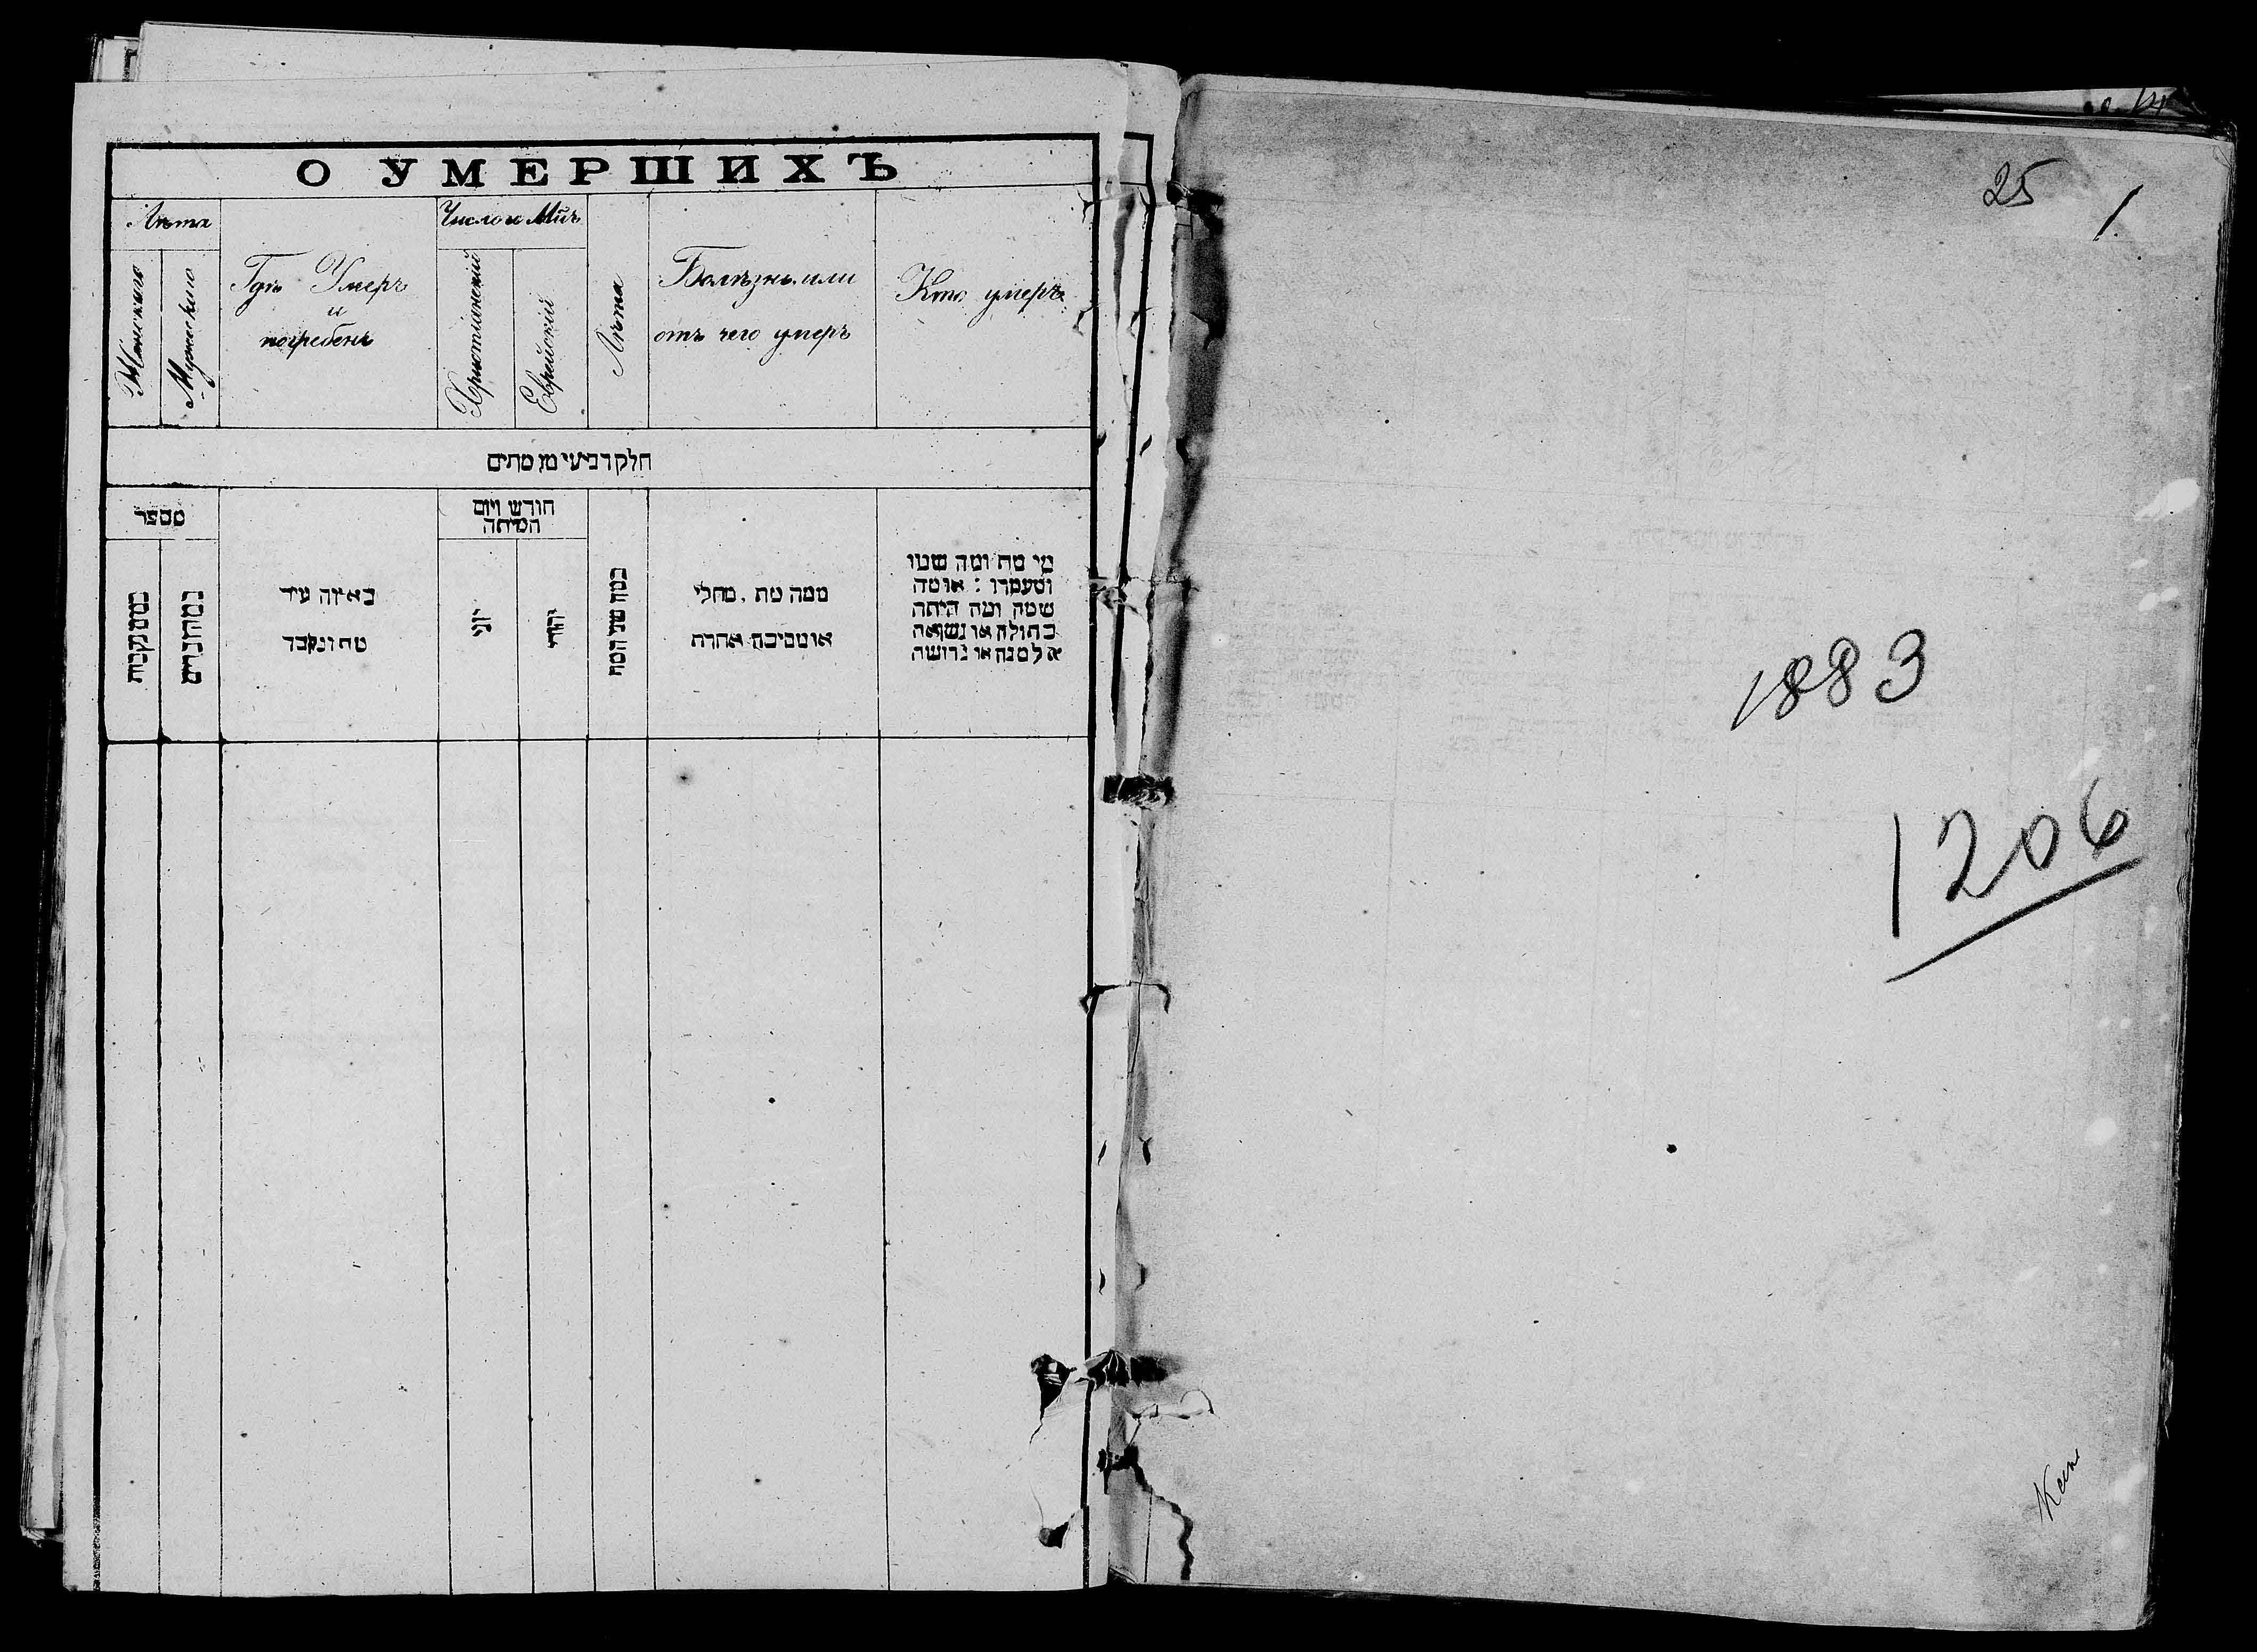 О УМЕРШИХЪ
Лѣта
Женскаго
Мужскаго
Гдѣ Умеръ
и
погребенъ
Число и Мц҃ъ
Христіанскій
Еврейскій
Лѣта
Болѣзнь или
отъ чего умеръ
Кто умеръ
חלק רביעי מן מתים
מספר
כמה נקבות
כמה זכרים
באיזה עיר
מת ונקבר
חודש ויום
המיתה
יוני
יהודי
כמה שני המת
ממה מת, מחלי
או מסיבה אחרת
מי מת ומה שמו
ומעמדו : או מה
שמה ומה היתה
בתולה או נשואה
אלמנה או גרושה
25
1
1883
1206